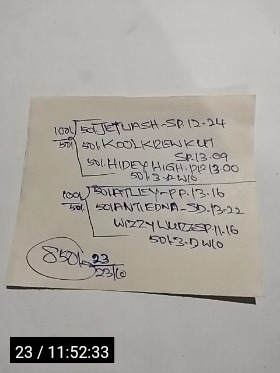 100/ 50/. JETWASH-SP.12-24
50/ 50/. KOOLKREWKUH
SP.13.09
50/. HIDEY HIGH. P.P.13.00
50/.3-DW/O
100/ 50/. ATLEY-P.P.13.16
50/ 50/ ANTIEDNA-SD.13-22
WIZZY SP.11-16
50/.3-DW/O
850/. 23
23/10
23 / 11:52:33